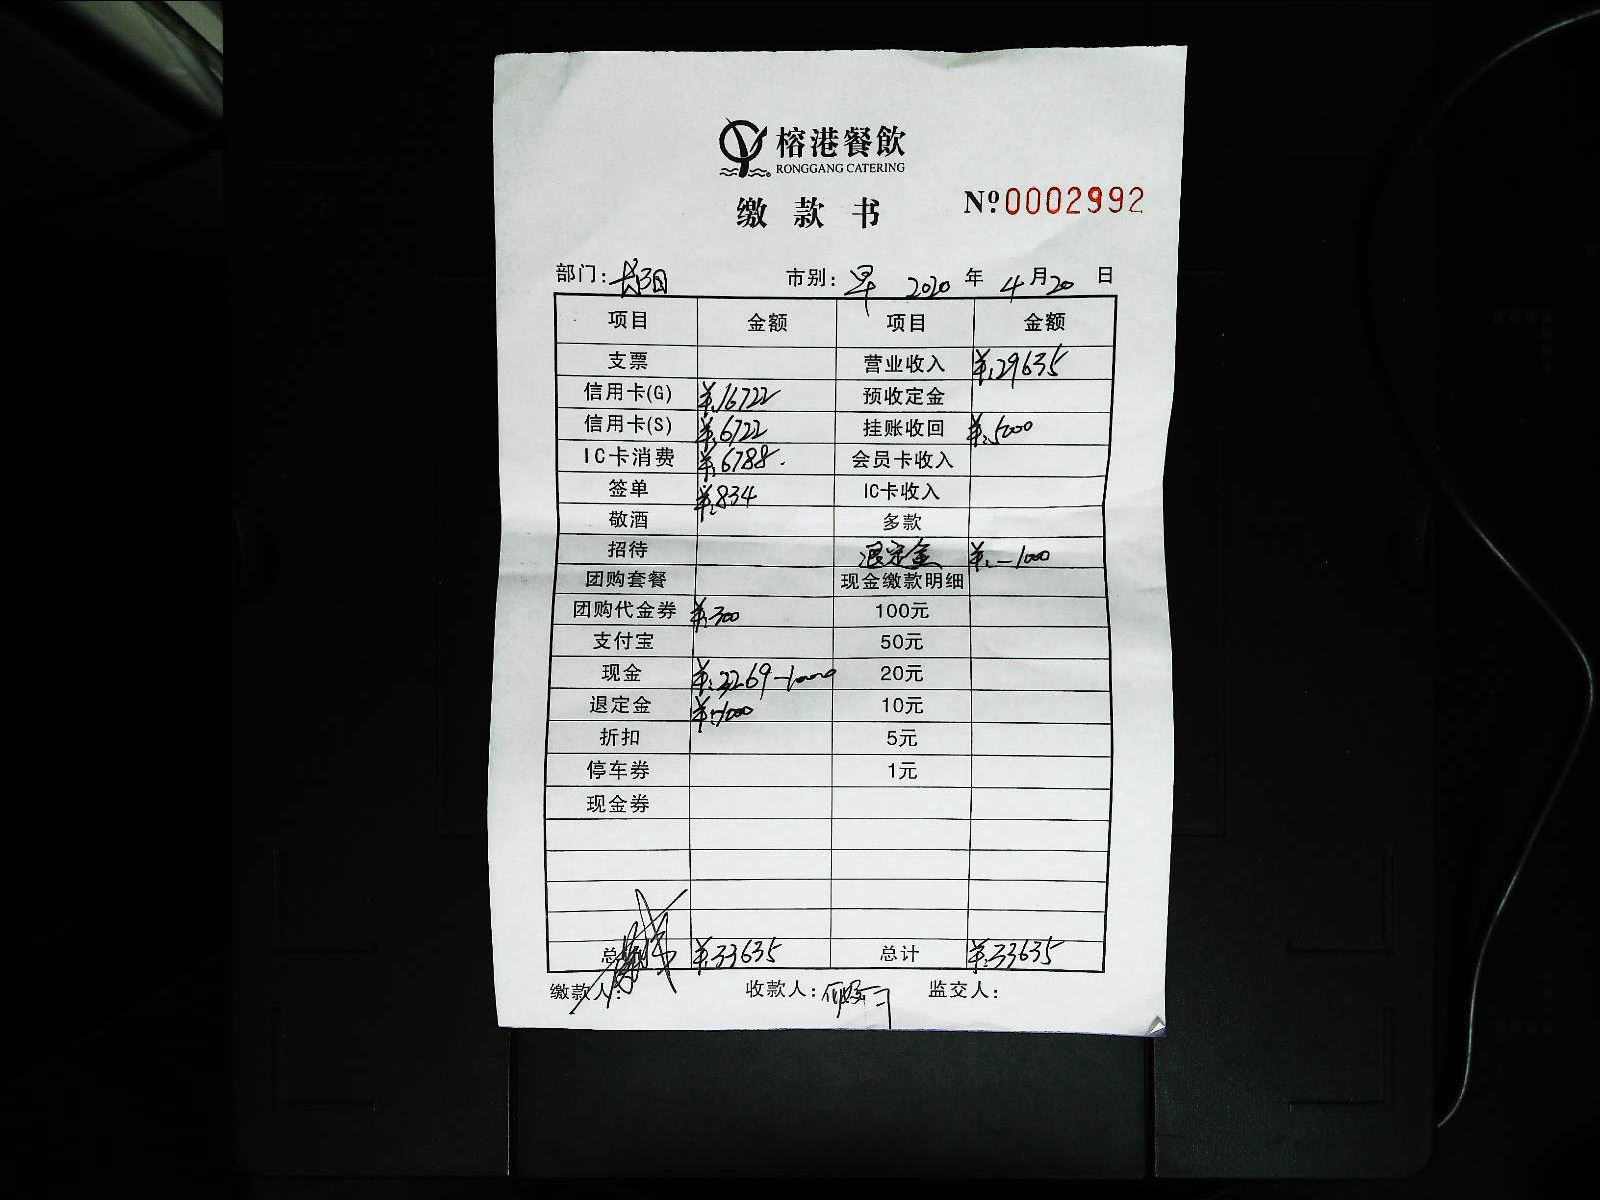 榕港餐飲
RONGGANG CATERING
缴款书 Nº 0002992
部门: 市别: 早 2020年4月20日
项目 金额 项目 金额
支票 营业收入 ¥:29635
信用卡(G) ¥:16722 预收定金
信用卡(S) ¥:6722 挂账收回 ¥:5000
IC卡消费 ¥:6788. 会员卡收入
签单 ¥:834 IC卡收入
敬酒 多款
招待 退定金 ¥:-1000
团购套餐 现金缴款明细
团购代金券 ¥:300 100元
支付宝 50元
现金 ¥:3269-1000 20元
退定金 ¥:-1000 10元
折扣 5元
停车券 1元
现金券
总 ¥:33635 总计 ¥:33635
缴款人: 收款人: 监交人: